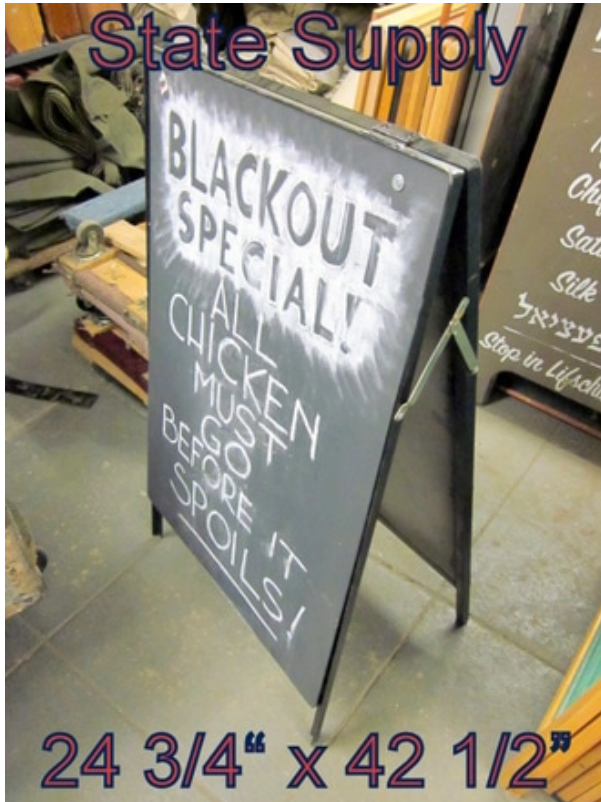 State Supply
BLACKOUT
SPECIAL!
ALL
CHICKEN
MUST
GO
BEFORE IT
SPOILS!
Silk
Stop in
24 3/4“ x 42 1/2”